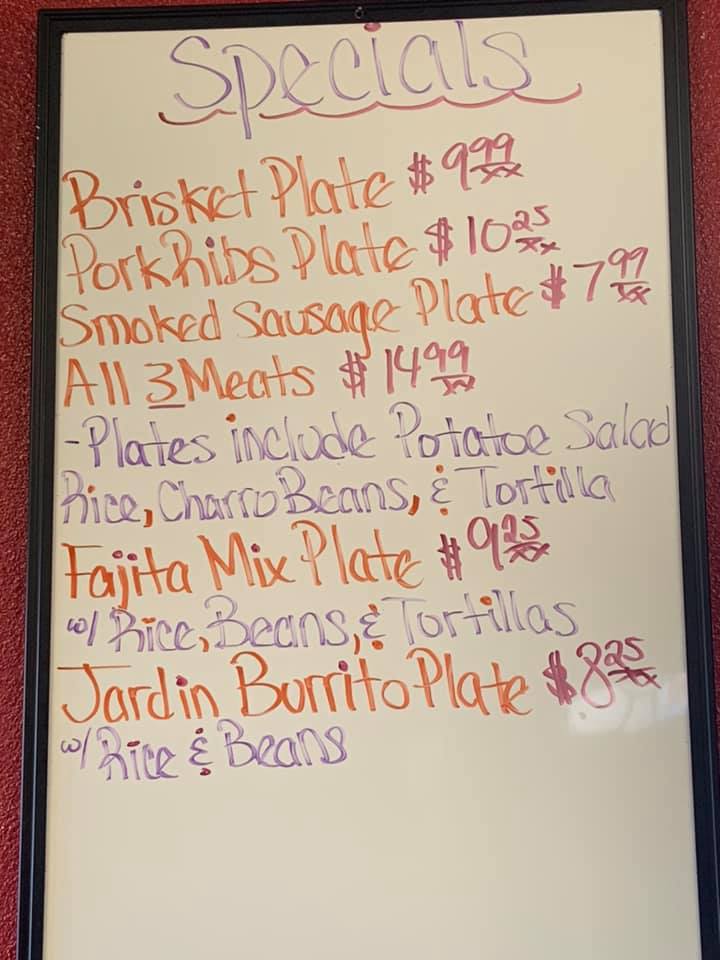 Specials
Brisket Plate $9 99/xx
Pork Ribs Plate $10 25/xx
Smoked Sausage Plate $7 99/xx
All 3 Meats $14 99/xx
-Plates include Potatoe Salad
Rice, Charro Beans, & Tortilla
Fajita Mix Plate $9 25/xx
w/ Rice, Beans, & Tortillas
Jardin Burrito Plate $8 25/xx
w/ Rice & Beans